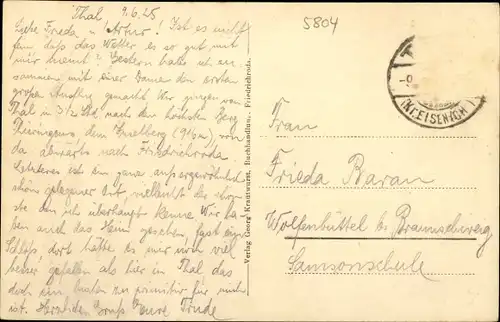 Thal 9.6.25
Liebe Frieda u. Artur! Ist es nicht
fein, daß das Wetter es so gut mit
mir meint? Gestern habe ich zu-
sammen mit einer Dame den ersten
großen Ausflug gemacht. Wir gingen von
Thal in 3½ Std. nach den höchsten Berg
Thüringens dem Inselberg (916 m), von
da abwärts nach Friedrichroda.
Letzteres ist ein ganz außergewöhnlich
schön gelegener Ort vielleicht der schön-
ste den ich überhaupt kenne. Wir ha-
ben auch das Heim gesehen, fast ein
Schloß, dort hätte es mir noch viel
besser gefallen als hier in Thal das
doch ein bischen zu primitiv für mich
ist. Herzlichen Gruß Eure Trude
Verlag Georg Brantwurst, Buchhandlung, Friedrichroda.
5804
(KR. EISENACH)
Frau
Frieda Baran
Wolfenbüttel b. Braunschweig
Samsonschule